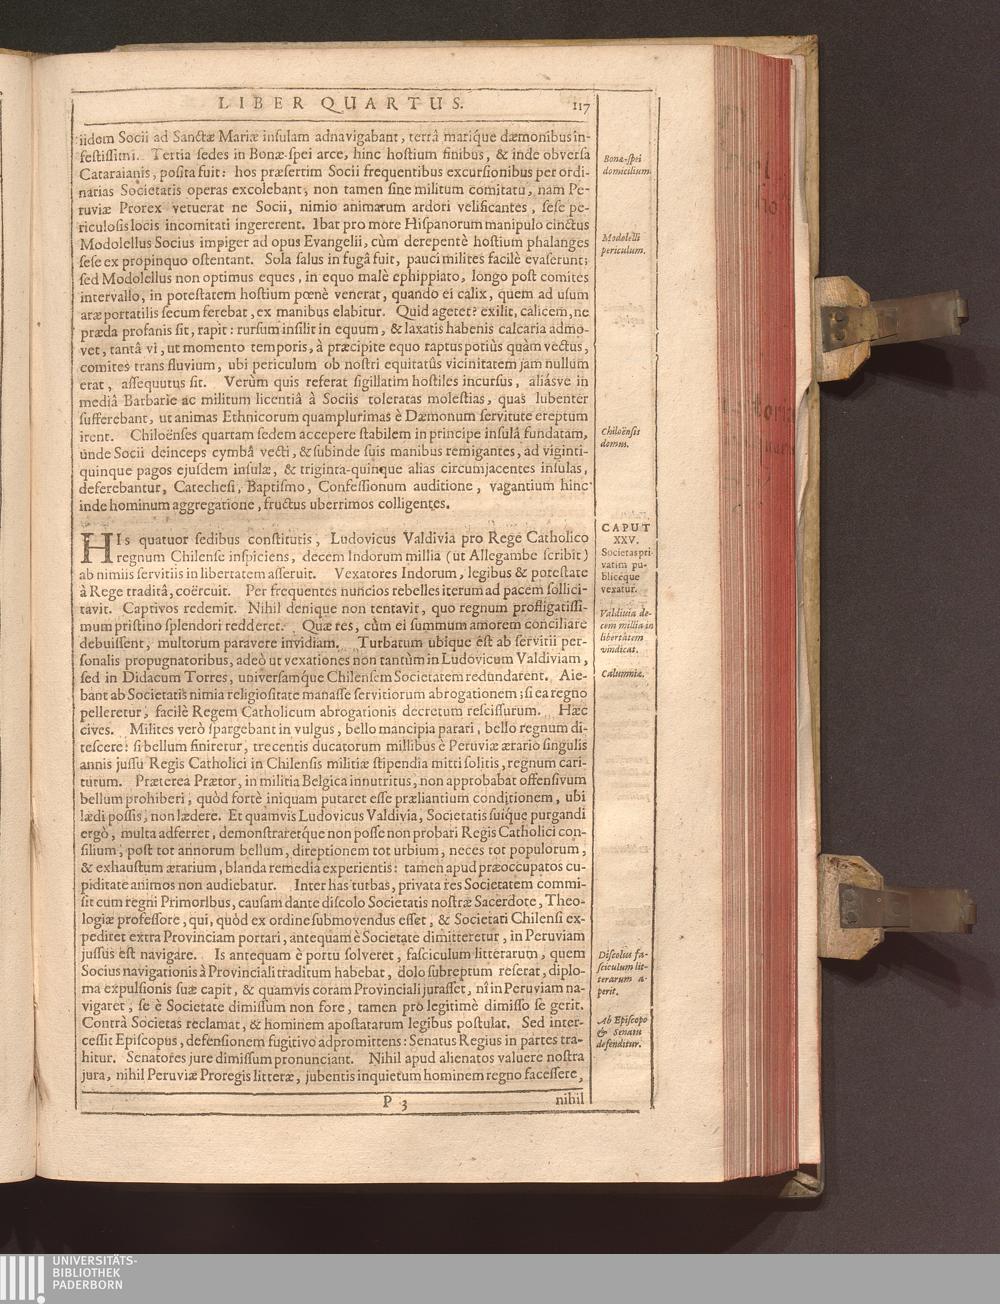 LIBER QUARTUS. 117
iidem Socii ad Sanctæ Mariæ insulam adnavigabant, terrâ marique dæmonibus in-
festissimi. Tertia sedes in Bonæ-spei arce, hinc hostium finibus, & inde obversa
Cataraianis, posita fuit: hos præsertim Socii frequentibus excursionibus per ordi-
narias Societatis operas excolebant, non tamen sine militum comitatu, nam Pe-
ruviæ Prorex vetuerat ne Socii, nimio animarum ardori velificantes, sese pe-
riculosis locis incomitati ingererent. Ibat pro more Hispanorum manipulo cinctus
Modolellus Socius impiger ad opus Evangelii, cùm derepentè hostium phalanges
sese ex propinquo ostentant. Sola salus in fugâ fuit, pauci milites facilè evaserunt;
sed Modolellus non optimus eques, in equo malè ephippiato, longo post comites
intervallo, in potestatem hostium pœnè venerat, quando ei calix, quem ad usum
aræ portatilis secum ferebat, ex manibus elabitur. Quid ageret? exilit, calicem, ne
præda profanis sit, rapit: rursum insilit in equum, & laxatis habenis calcaria admo-
vet, tantâ vi, ut momento temporis, à præcipite equo raptus potiùs quàm vectus,
comites trans fluvium, ubi periculum ob nostri equitatûs vicinitatem jam nullum
erat, assequutus sit. Verùm quis referat sigillatim hostiles incursus, aliásve in
mediâ Barbarie ac militum licentiâ à Sociis toleratas molestias, quas lubenter
sufferebant, ut animas Ethnicorum quamplurimas è Dæmonum servitute ereptum
irent. Chiloënses quartam sedem accepere stabilem in principe insulâ fundatam,
unde Socii deinceps cymbâ vecti, & subinde suis manibus remigantes, ad viginti-
quinque pagos ejusdem insulæ, & triginta-quinque alias circumjacentes insulas,
deferebantur, Catechesi, Baptismo, Confessionum auditione, vagantium hinc
inde hominum aggregatione, fructus uberrimos colligentes.
HIs quatuor sedibus constitutis, Ludovicus Valdivia pro Rege Catholico
regnum Chilense inspiciens, decem Indorum millia (ut Allegambe scribit)
ab nimiis servitiis in libertatem asseruit. Vexatores Indorum, legibus & potestate
à Rege traditâ, coërcuit. Per frequentes nuncios rebelles iterum ad pacem sollici-
tavit. Captivos redemit. Nihil denique non tentavit, quo regnum profligatissi-
mum pristino splendori redderet. Quæ res, cùm ei summum amorem conciliare
debuissent, multorum paravere invidiam. Turbatum ubique est ab servitii per-
sonalis propugnatoribus, adeò ut vexationes non tantùm in Ludovicum Valdiviam,
sed in Didacum Torres, universamque Chilensem Societatem redundarent. Aie-
bant ab Societatis nimia religiositate manasse servitiorum abrogationem; si ea regno
pelleretur, facilè Regem Catholicum abrogationis decretum rescissurum. Hæc
cives. Milites verò spargebant in vulgus, bello mancipia parari, bello regnum di-
tescere: si bellum finiretur, trecentis ducatorum millibus è Peruviæ ærario singulis
annis jussu Regis Catholici in Chilensis militiæ stipendia mitti solitis, regnum cari-
turum. Præterea Prætor, in militia Belgica innutritus, non approbabat offensivum
bellum prohiberi, quòd fortè iniquam putaret esse præliantium conditionem, ubi
lædi possis, non lædere. Et quamvis Ludovicus Valdivia, Societatis suique purgandi
ergò, multa adferret, demonstraretque non posse non probari Regis Catholici con-
silium, post tot annorum bellum, direptionem tot urbium, neces tot populorum,
& exhaustum ærarium, blanda remedia experientis: tamen apud præoccupatos cu-
piditate animos non audiebatur. Inter has turbas, privata res Societatem commi-
sit cum regni Primoribus, causam dante discolo Societatis nostræ Sacerdote, Theo-
logiæ professore, qui, quòd ex ordine submovendus esset, & Societati Chilensi ex-
pediret extra Provinciam portari, antequam è Societate dimitteretur, in Peruviam
jussus est navigare. Is antequam è portu solveret, fasciculum litterarum, quem
Socius navigationis à Provinciali traditum habebat, dolo subreptum reserat, diplo-
ma expulsionis suæ capit, & quamvis coram Provinciali jurasset, nî in Peruviam na-
vigaret, se è Societate dimissum non fore, tamen pro legitimè dimisso se gerit.
Contrà Societas reclamat, & hominem apostatarum legibus postulat. Sed inter-
cessit Episcopus, defensionem fugitivo adpromittens: Senatus Regius in partes tra-
hitur. Senatores jure dimissum pronunciant. Nihil apud alienatos valuere nostra
jura, nihil Peruviæ Proregis litteræ, jubentis inquietum hominem regno facessere,
P 3 nihil
Bonæ-spei
domicilium.
Modolelli
periculum.
Chiloënsis
domus.
CAPUT
XXV.
Societas pri-
vatim pu-
bliceque
vexatur.
Valdivia de-
cem millia in
libertatem
vindicat.
Calumniæ.
Discolus fa-
sciculum lit-
terarum a-
perit.
Ab Episcopo
& Senatu
defenditur.
UNIVERSITÄTS-
BIBLIOTHEK
PADERBORN